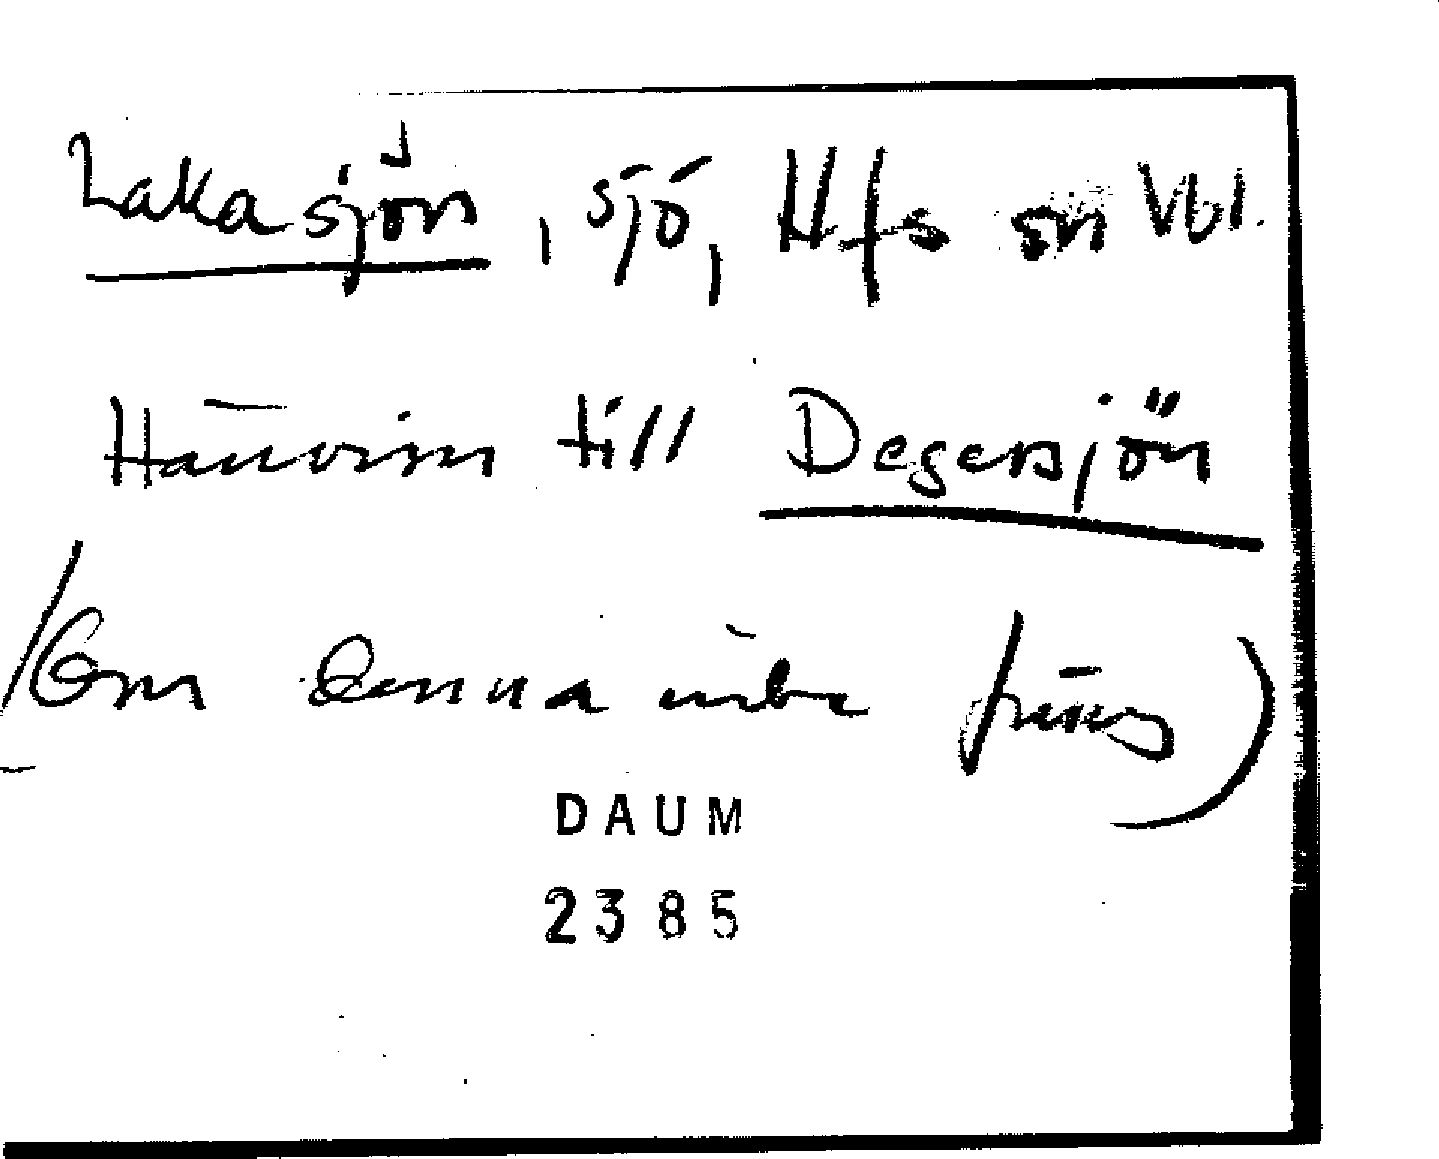 Lakasjön, sjö, Hfs sn Vbl.
Hänvisn till Degersjön
(Om denna inte finns)
DAUM
2385